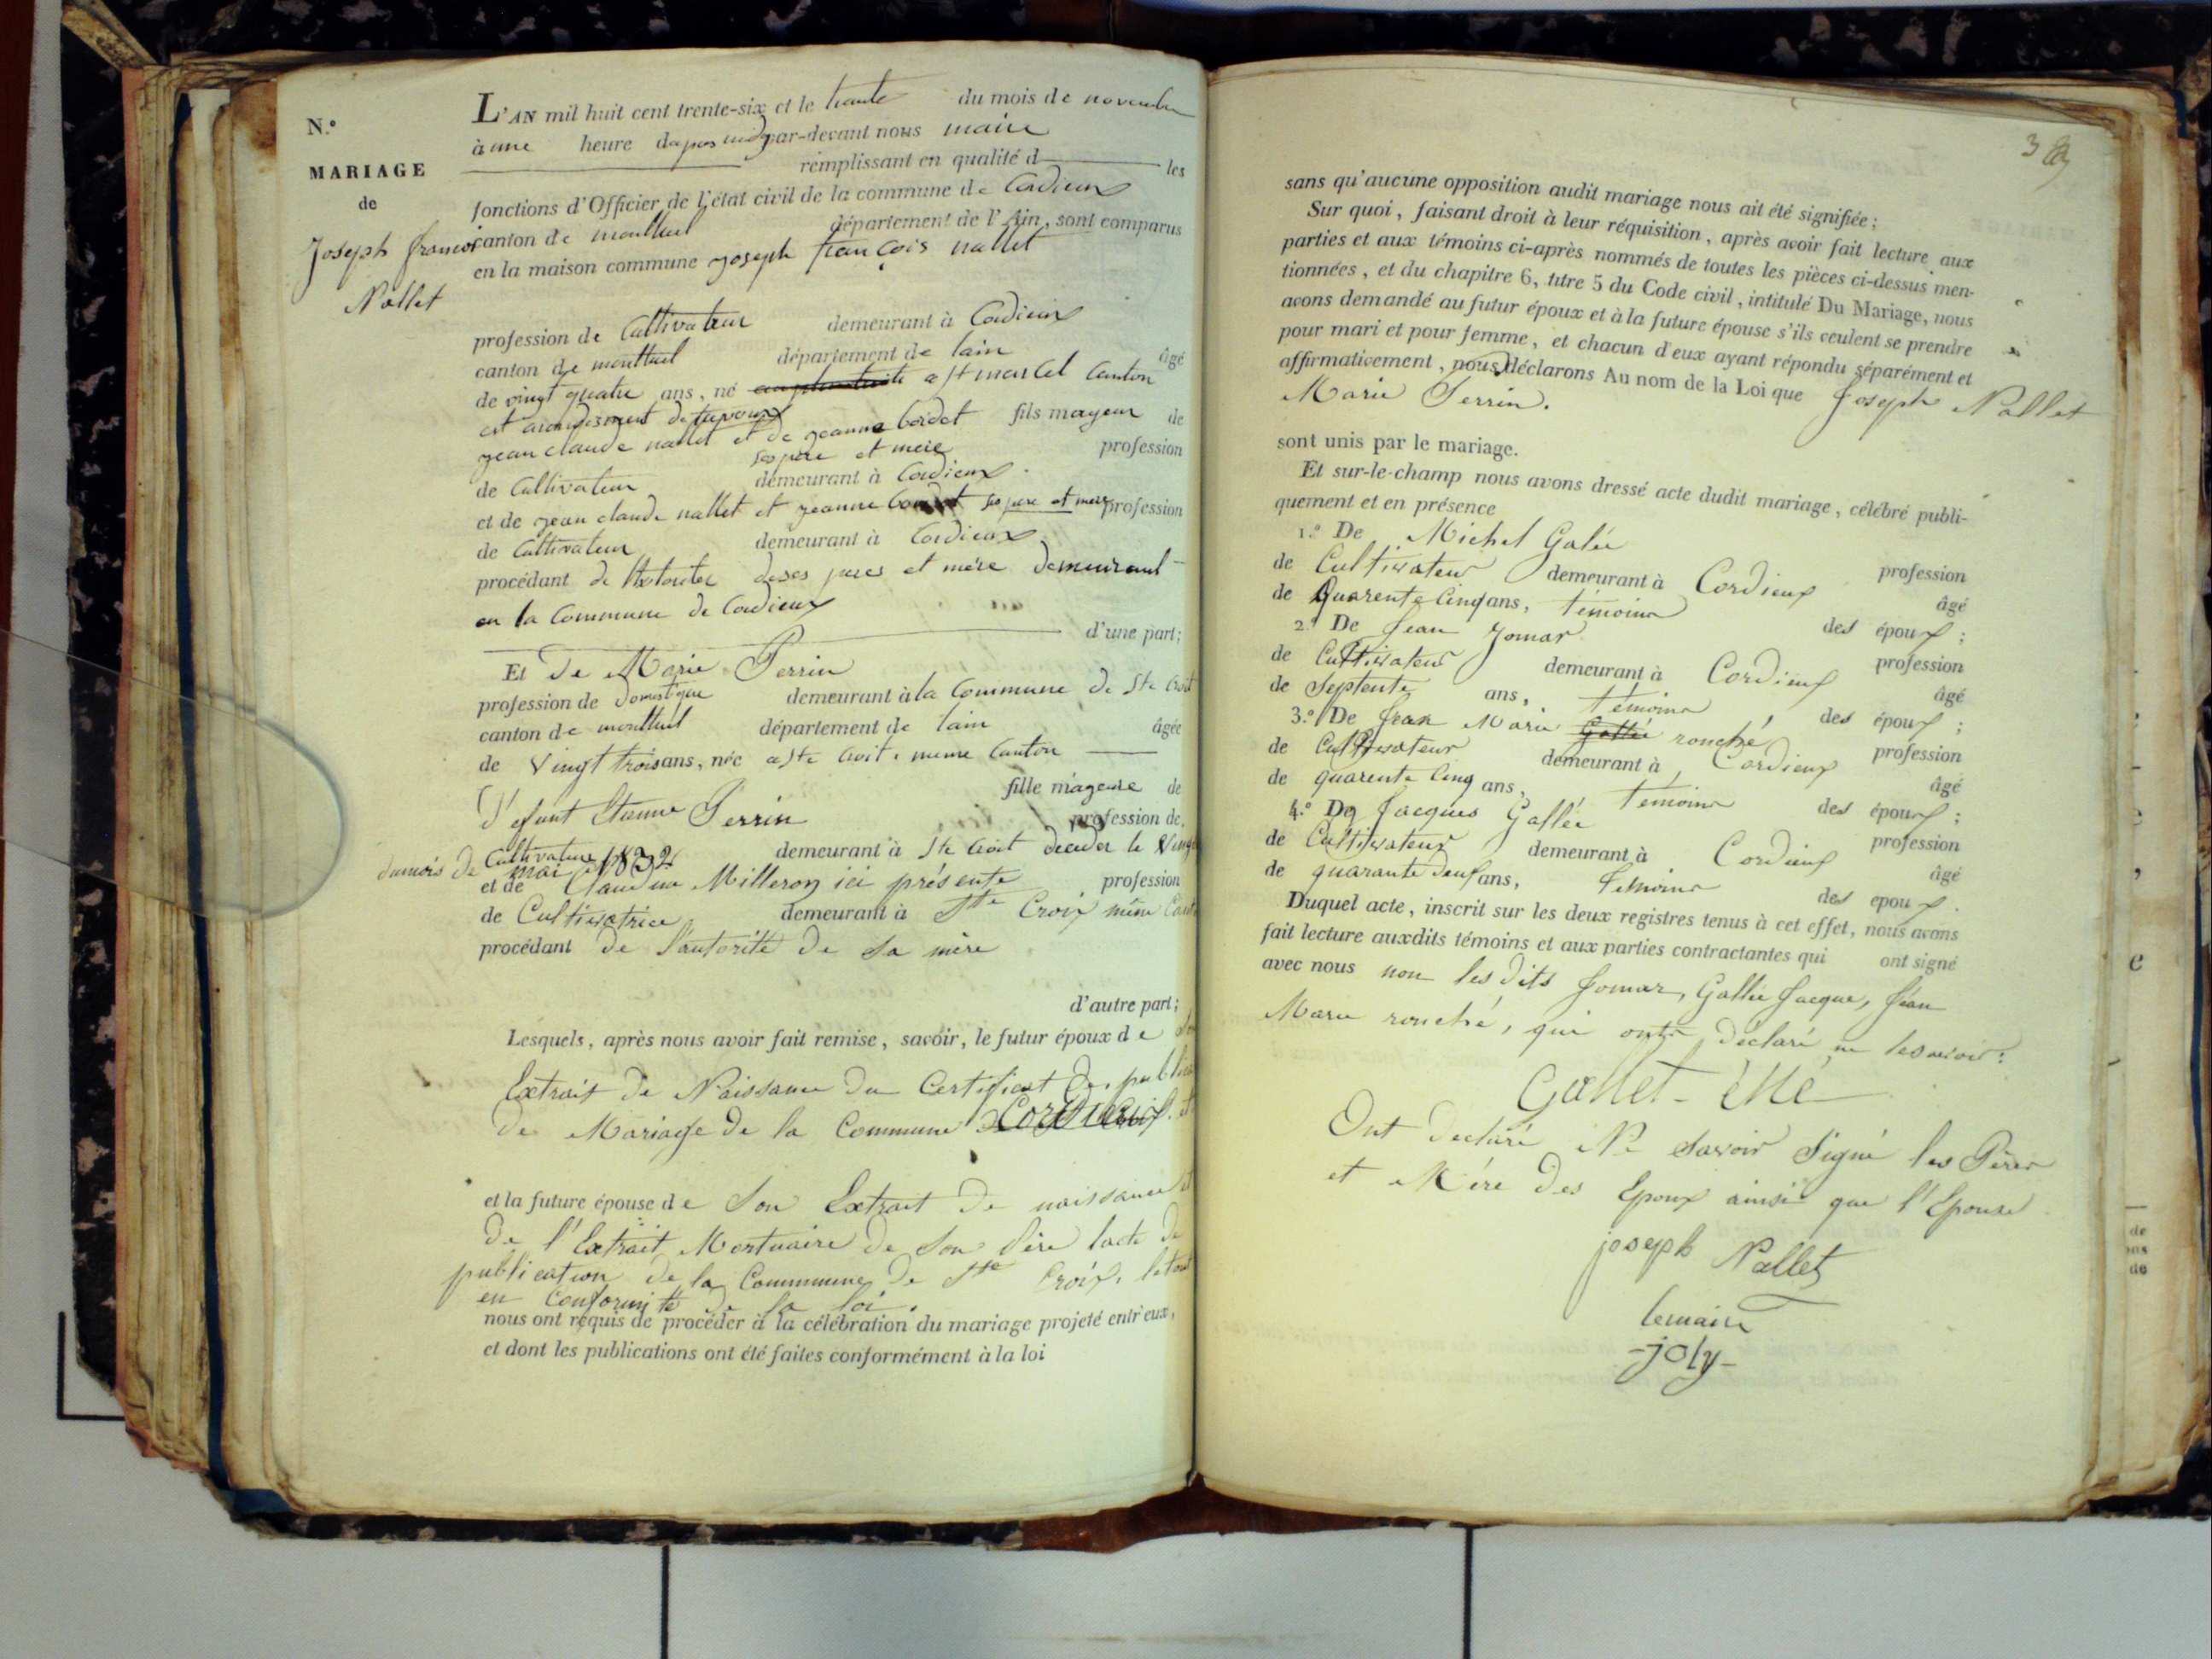 N.º
MARIAGE
de
Joseph francois
Nallet
L'AN mil huit cent trente-six et le trente du mois de novembre
à une heure dapres midy par-devant nous maire
remplissant en qualité d les
fonctions d'Officier de l'état civil de la commune de Cordieux
canton de montluel département de l'Ain, sont comparus
en la maison commune joseph françois nallet
profession de Cultivateur demeurant à Cordieux
canton de montluel département de lain âgé
de vingt quatre ans, né a st marcel Canton
et arondisment de trevoux fils mageur de
jean claude nallet et de jeanne bordet profession
ses père et mere
de Cultivateur demeurant à Cordieux
et de jean claude nallet et jeanne ses pere et mere profession
de Cultivateur demeurant à Cordieux
procédant de deses peres et mére demeurant
en la Commune de Cordieux
d'une part;
Et De Marie Perrin
profession de Domestique demeurant à la Commune de Ste Croit
canton de montluel département de lain âgée
de Vingt trois ans, née a Ste Croit meme Canton
fille mageure de
D'efunt Etienne Perrin profession de
Cultivateur demeurant à Ste Croit decedez le Vingt
dumois de mai 1832
et de Claudine Milleron ici présente profession
de Cultivatrice demeurant à Ste Croix même Cant
procédant de l'autorité de sa mère
d'autre part;
Lesquels, après nous avoir fait remise, savoir, le futur époux de
Extrait De Naissance Du Certificat De publi
De Mariage De la Commune Cordieux
et la future épouse de Son Extrait De naissance
De l'Extrait Mortuaire De Son Père lacte De
publication De la Commune De Ste Croix, le tout
en Conformité De la loi.
nous ont requis de procéder à la célébration du mariage projeté entr'eux,
et dont les publications ont été faites conformément à la loi
38
sans qu'aucune opposition audit mariage nous ait été signifiée;
Sur quoi, faisant droit à leur réquisition, après avoir fait lecture aux
parties et aux témoins ci-après nommés de toutes les pièces ci-dessus men-
tionnées, et du chapitre 6, titre 5 du Code civil, intitulé Du Mariage, nous
avons demandé au futur époux et à la future épouse s'ils veulent se prendre
pour mari et pour femme, et chacun d'eux ayant répondu séparément et
affirmativement, nous déclarons Au nom de la Loi que Joseph Nallet
Marie Perrin.
sont unis par le mariage.
Et sur-le-champ nous avons dressé acte dudit mariage, célébré publi-
quement et en présence
1.º De Michel Galée profession
de Cultivateur demeurant à Cordieux âgé
de Quarente Cinq ans, témoins des époux;
2.º De Jean Jomar profession
de Cultivateur demeurant à Cordieux âgé
de Septente ans, témoins des époux;
3.º De Jean Marie Gallée ronché profession
de Cultivateur demeurant à Cordieux âgé
de quarente Cinq ans, témoins des époux;
4.º De Jacques Gallée profession
de Cultivateur demeurant à Cordieux âgé
de quarante Deux ans, témoins des epoux.
Duquel acte, inscrit sur les deux registres tenus à cet effet, nous avons
fait lecture auxdits témoins et aux parties contractantes qui ont signé
avec nous non les Dits Jomar, Gallée Jacque, Jean
Marie ronché, qui ont déclaré ne lesavoir:
Gallet-
Ont declaré Ne Savoir Signé les Pères
et Mére Des Epoux ainsi que l'Epouse
joseph Nallet
lemaire
-joly-